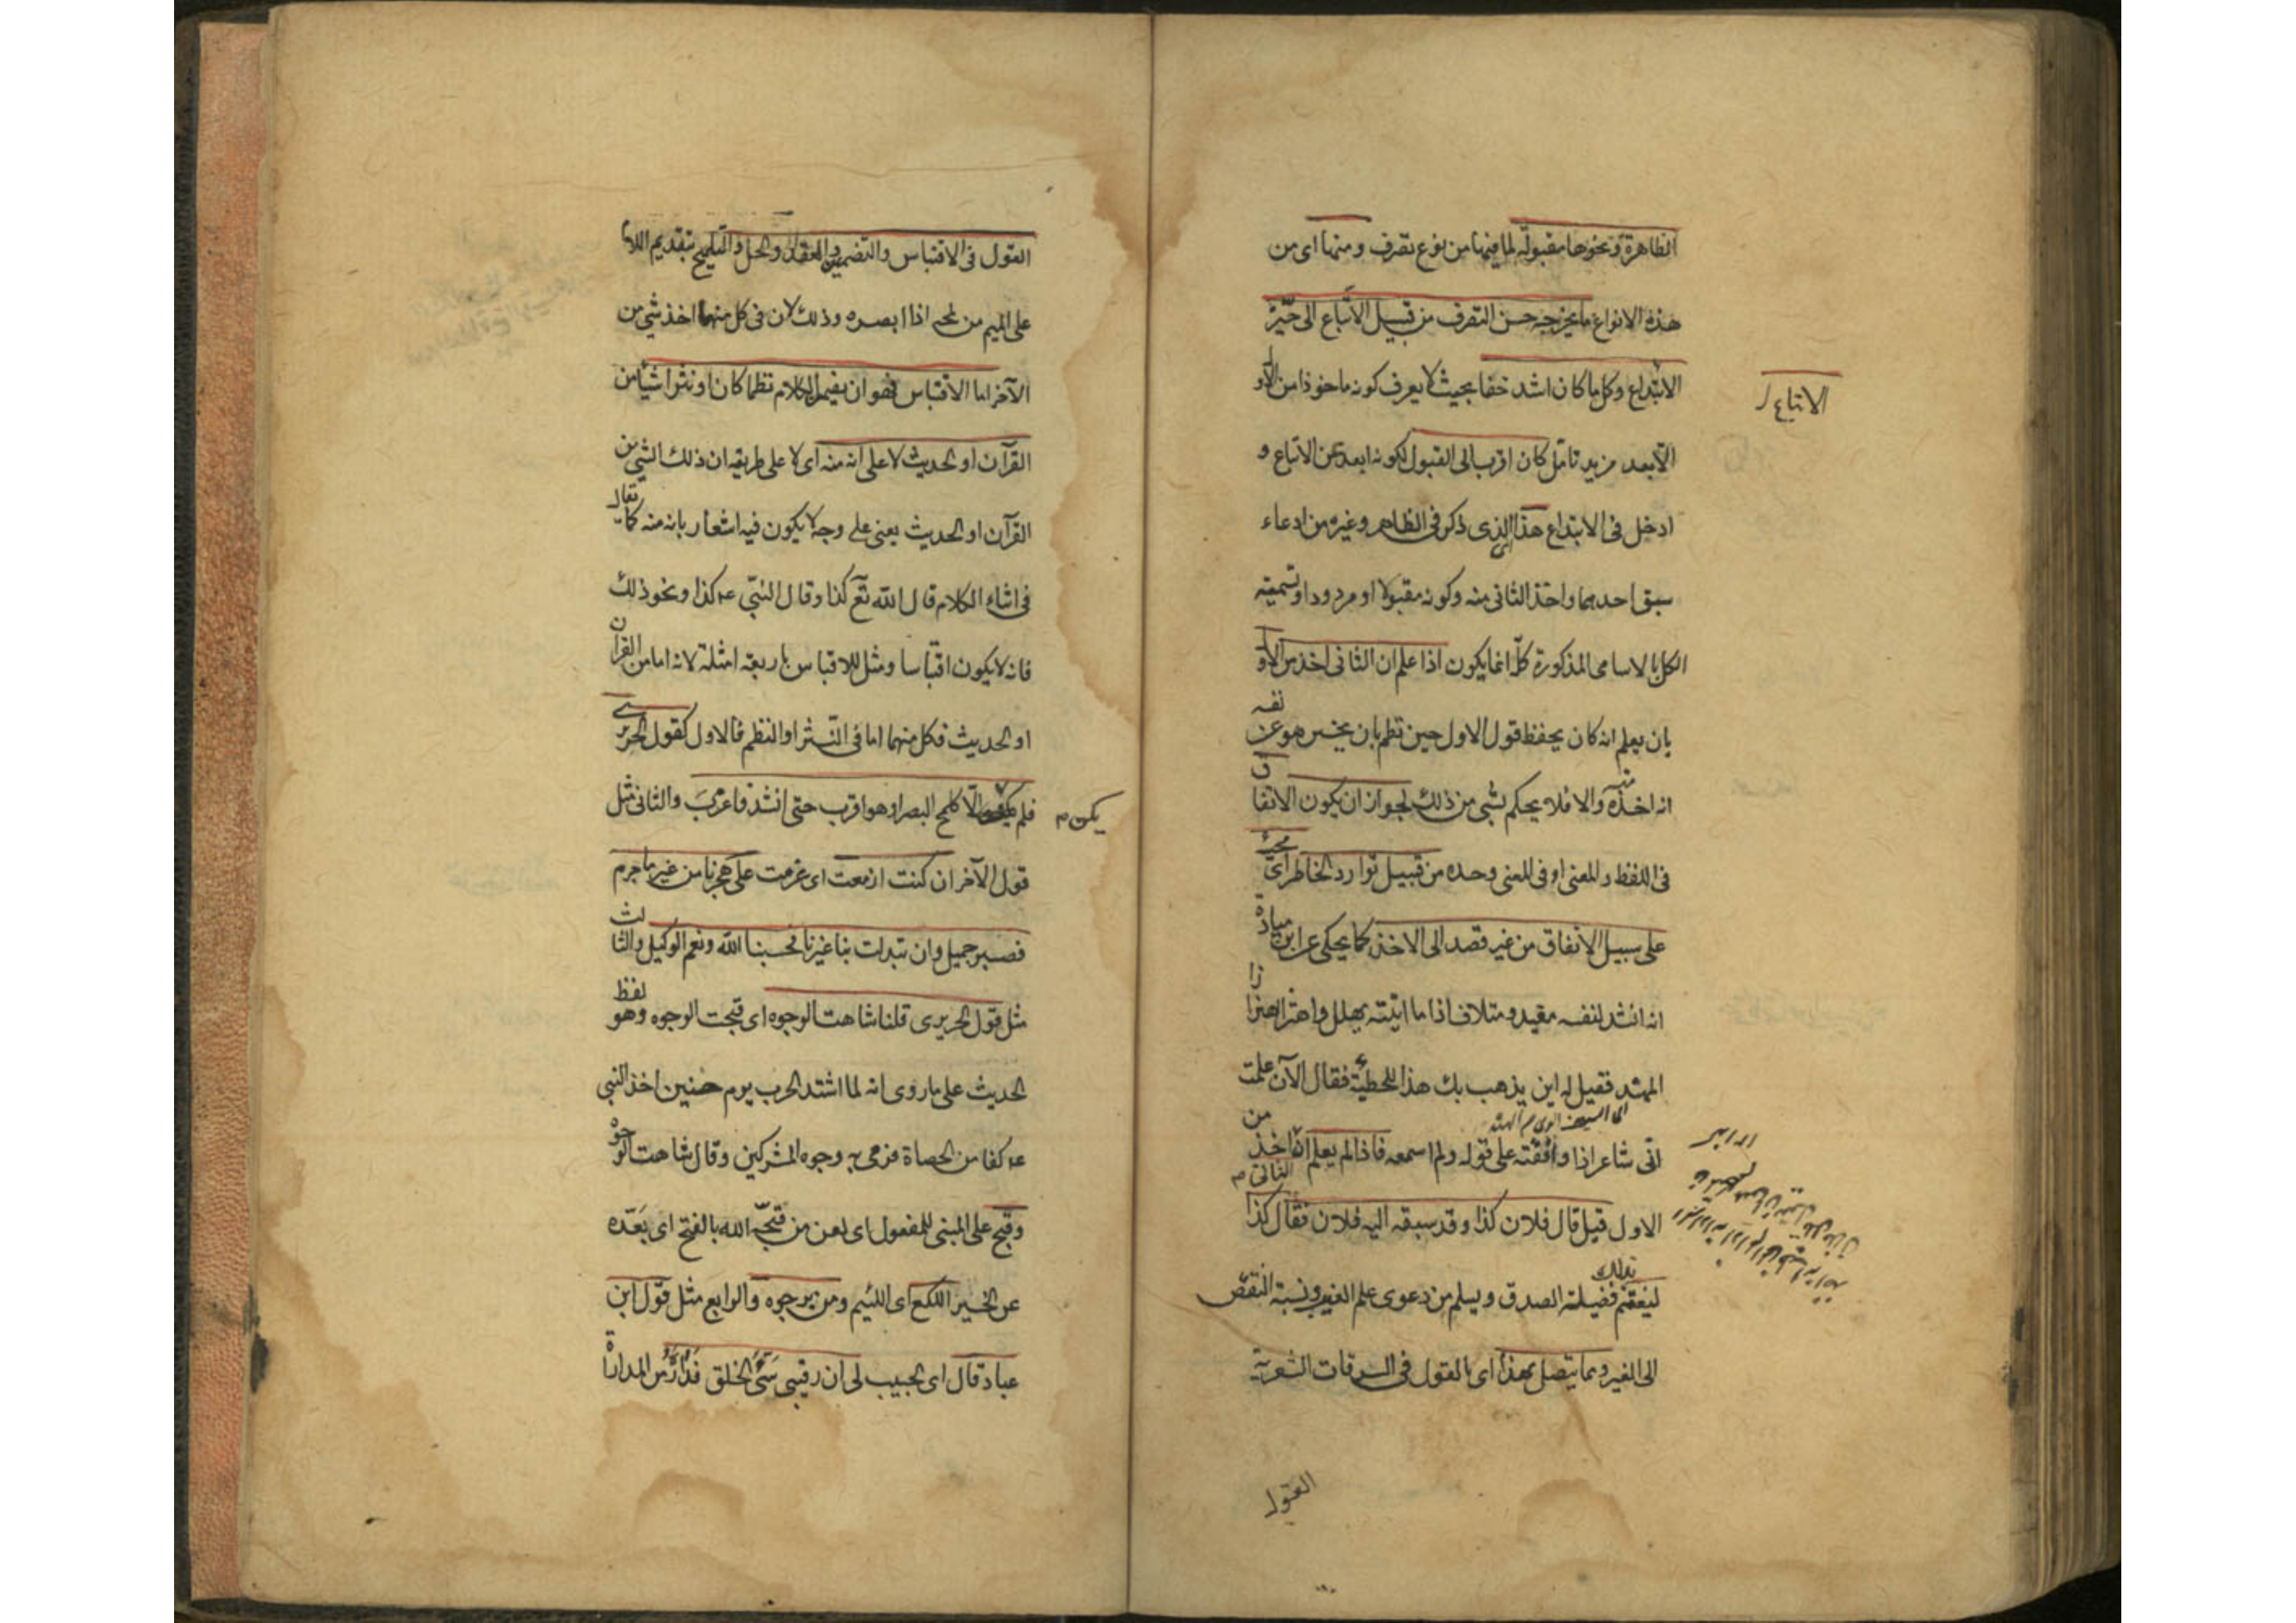 الظاهرة ونحوها مقبولة لما فيها من نوع تصرف ومنها اى من
هذه الانواع ما يخرجه حسن التصرف من قبيل الاتباع الى حيّز
الابتداع وكل ما كان اشد خفا بحيث لا يعرف كونه ماخوذا من الاول
الا بعد مزيد تامل كان اقرب الى القبول لكونه ابعد عن الاتباع و
ادخل فى الابتداع هذا الذى ذكر فى الظاهر وغيره من ادعاء
سبق احدهما واخذ الثانى منه وكونه مقبولا او مردودا وتسمية
الكل بالاسامى المذكورة كلّ انما يكون اذا علم ان الثانى اخذ من الاول
بان يعلم انه كان يحفظ قول الاول حين نظم بان يخبر هو عن نفسه
انه اخذه منه والا فلا يحكم بشئ من ذلك لجواز ان يكون الاتفاق
فى اللفظ والمعنى او فى المعنى وحده من قبيل توارد الخاطر اى مجيئه
على سبيل الاتفاق من غير قصد الى الاخذ كما يحكى عن ابن ميادة
انه انشد لنفسه مفيد ومتلاف اذا ما اتيته تهلل واهتز اهتزاز
المهند فقيل له اين يذهب بك هذا للحطيئة فقال الآن علمت
انّى شاعر اذا وافقته على قوله ولم اسمعه فاذا لم يعلم ان الثانى اخذ من
الاول قيل قال فلان كذا وقد سبقه اليه فلان فقال كذا
ليغتنم بذلك فضيلة الصدق ويسلم من دعوى علم الغيب ونسبة النقص
الى الغير ومما يتصل بهذا اى بالقول فى السرقات الشعرية
الاتباع
القول
القول فى الاقتباس والتضمين والعقد والحل والتلميح بتقديم اللام
على الميم من لمحه اذا ابصره وذلك لان فى كل منها اخذ شئ من
الآخر اما الاقتباس فهو ان يضمن الكلام نظما كان او نثرا شيأ من
القرآن او الحديث لا على انه منه اى لا على طريقه ان ذلك الشئ من
القرآن او الحديث يعنى على وجه لا يكون فيه اشعار بانه منه كما يقال
فى اثناء الكلام قال الله تع كذا وقال النبّى عم كذا ونحو ذلك
فانه لا يكون اقتباسا ومثل للاقتباس باربعة امثلة لانه اما من القرآن
او الحديث فكل منهما اما فى النثر او النظم فالاول كقول الحريرى
فلم يكن الّا كلمح البصر او هو اقرب حتى انشد فاغرب والثانى مثل
يكن
قول الآخر ان كنت ازمعت اى عزمت على هجرنا من غير ما جرم
فصبر جميل وان تبدلت بنا غيرنا فحسبنا الله ونعم الوكيل والثالث
مثل قول الحريرى قلنا شاهت الوجوه اى قبحت الوجوه وهو لفظ
الحديث على ما روى انه لما اشتد الحرب يوم حنين اخذ النبى
عم كفا من الحصاة فرمى به وجوه المشركين وقال شاهت الوجوه
وقبح على المبنى للمفعول اى لعن من قبحّه الله بالفتح اى بعّده
عن الخير اللكع اى اللئيم ومن يرجوه والرابع مثل قول ابن
عباد قال اى الحبيب لى ان رقيبى سئ الخلق فداره من المداراة